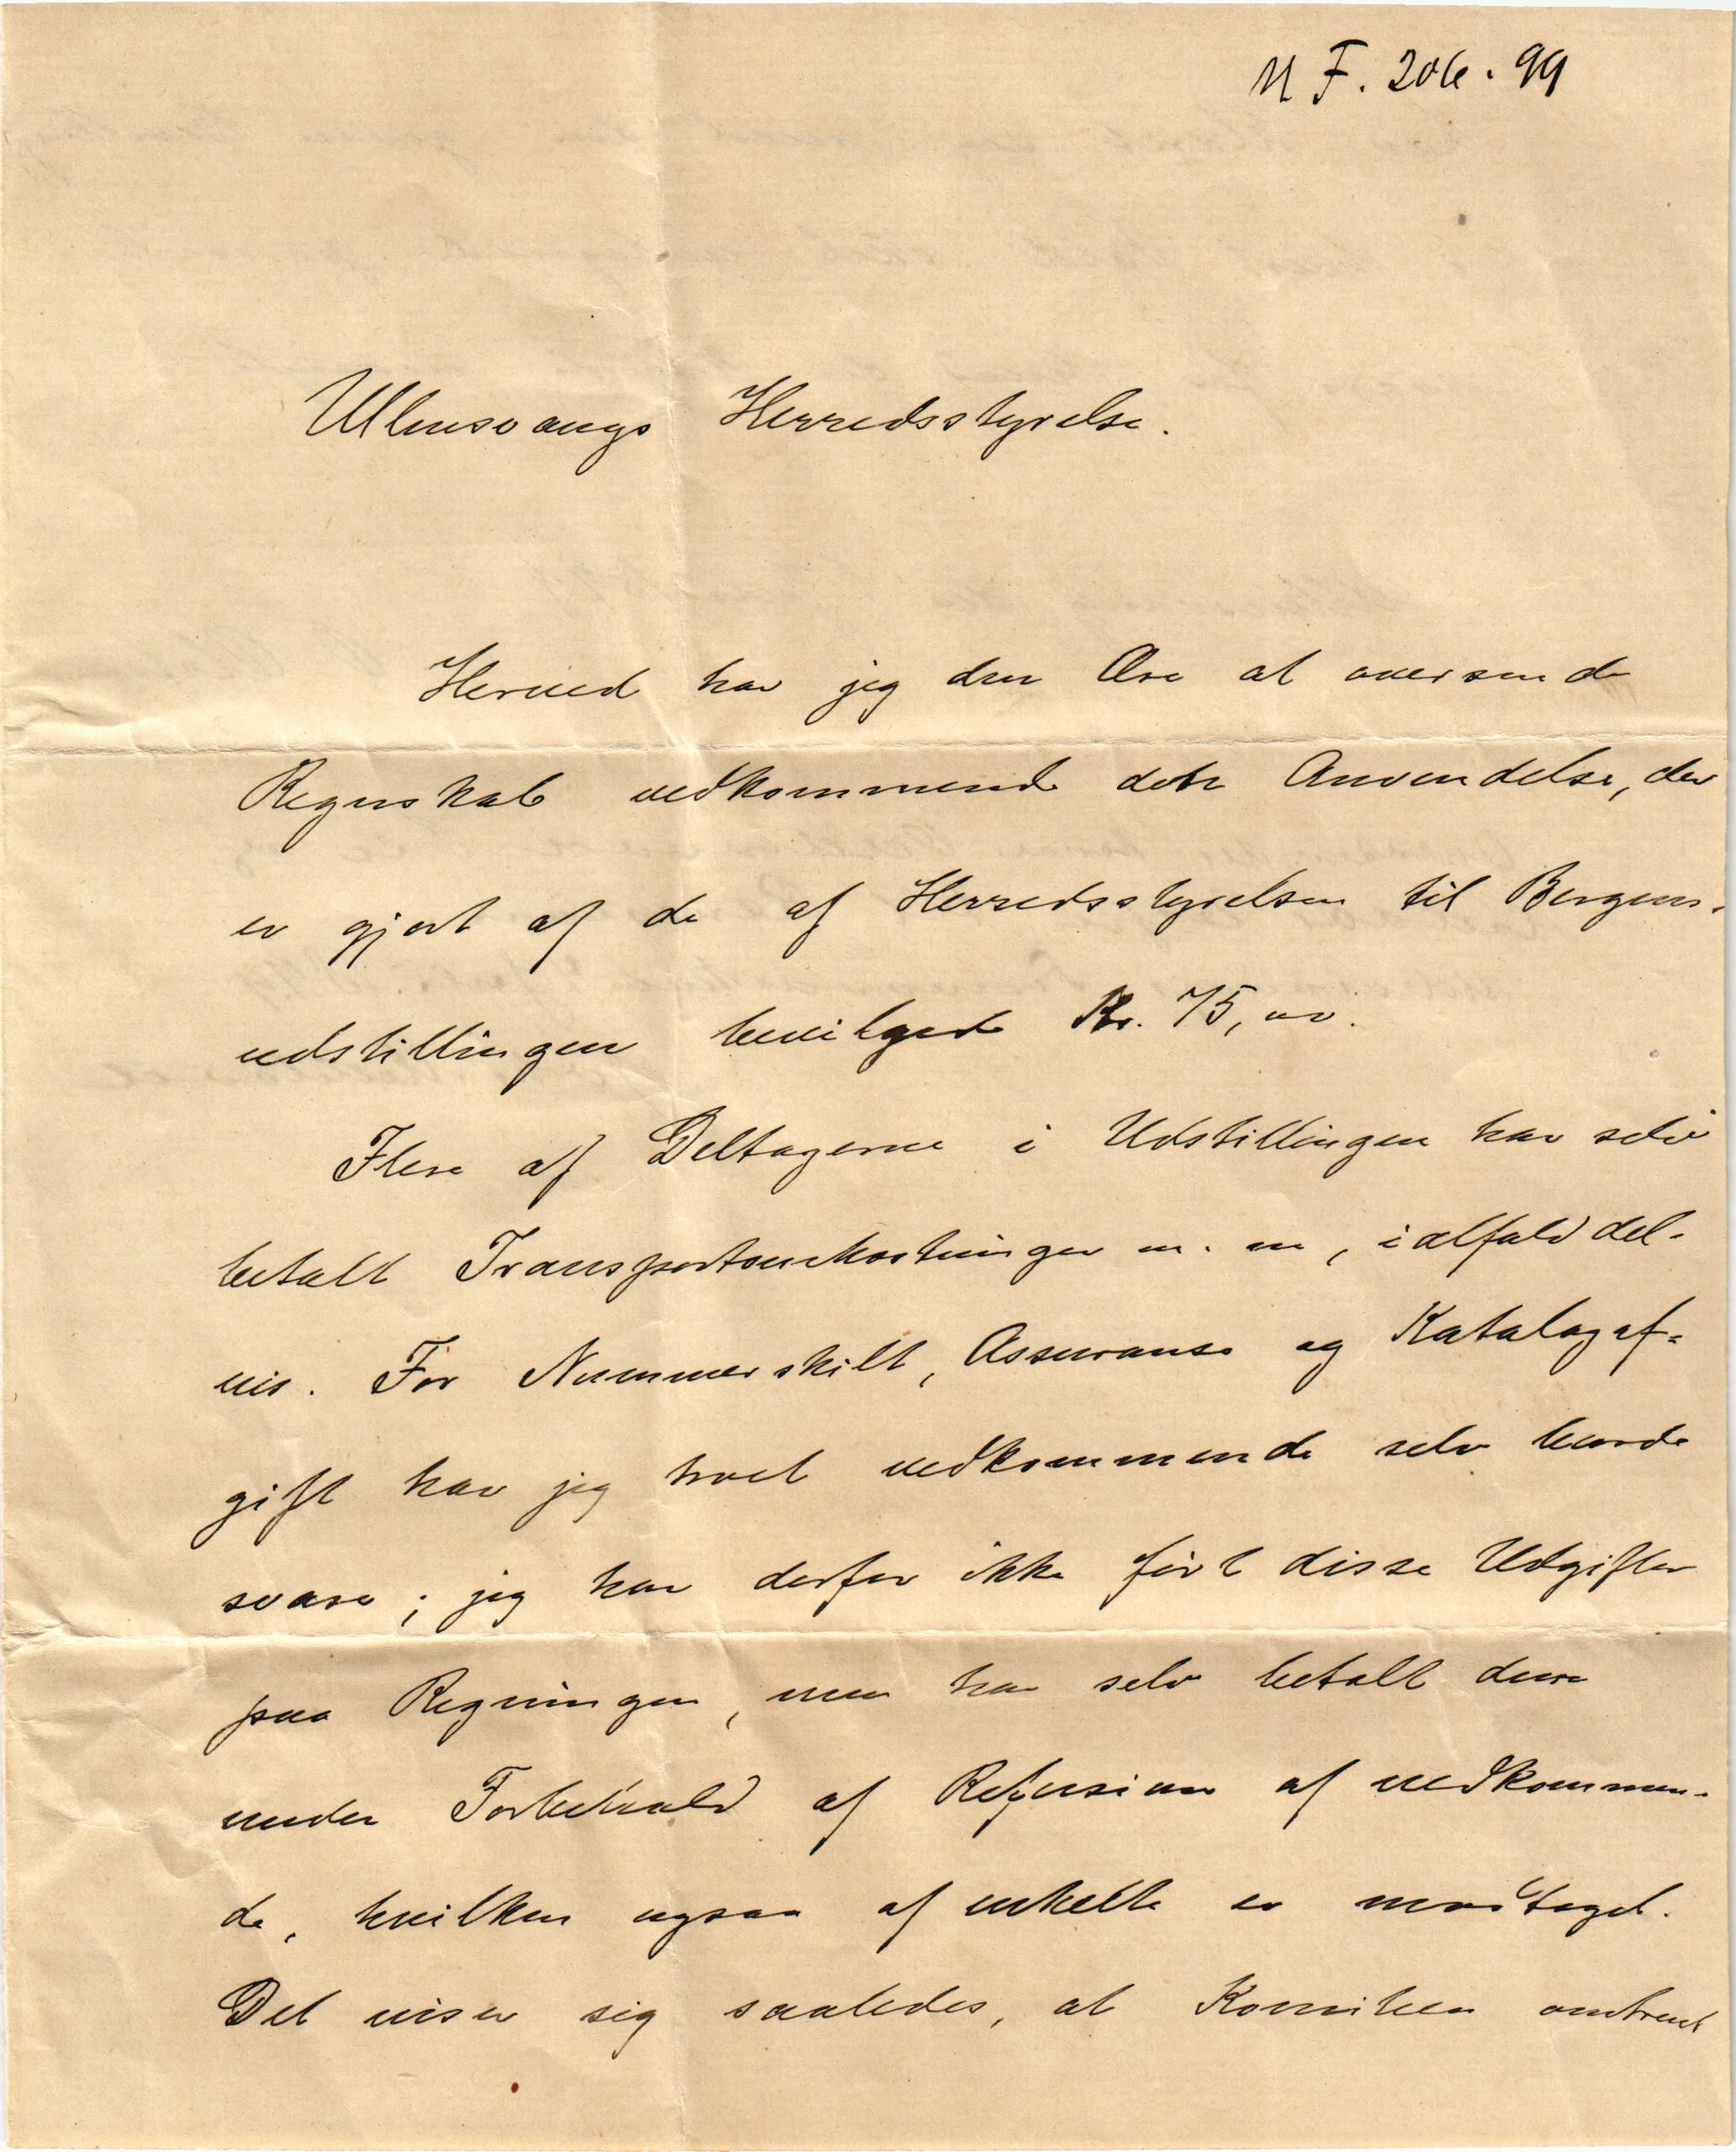 N F. 206. 99
Ullensvangs Herredsstyrelse.
Herved har jeg den Ære at oversende
Regnskab vedkommende den Anvendelse, der
er gjort af de af Herredsstyrelsen til Bergens-
udstillingen bevilgede Kr. 75,00.
Flere af Deltagerne i Udstillingen har selv
betalt Transportomkostninger m. m, ialfald del-
vis. For Nummerskilt, Assuranse og Katalogaf-
gift har jeg troet vedkommende selv burde
svare; jeg har derfor ikke ført disse Udgifter
paa Regningen, men har selv betalt dem
under Forbehold af Refusion af vedkommen-
de, hvilken ogsaa af enkelte er modtaget.
Det viser sig saaledes, at Komiteen omtrent